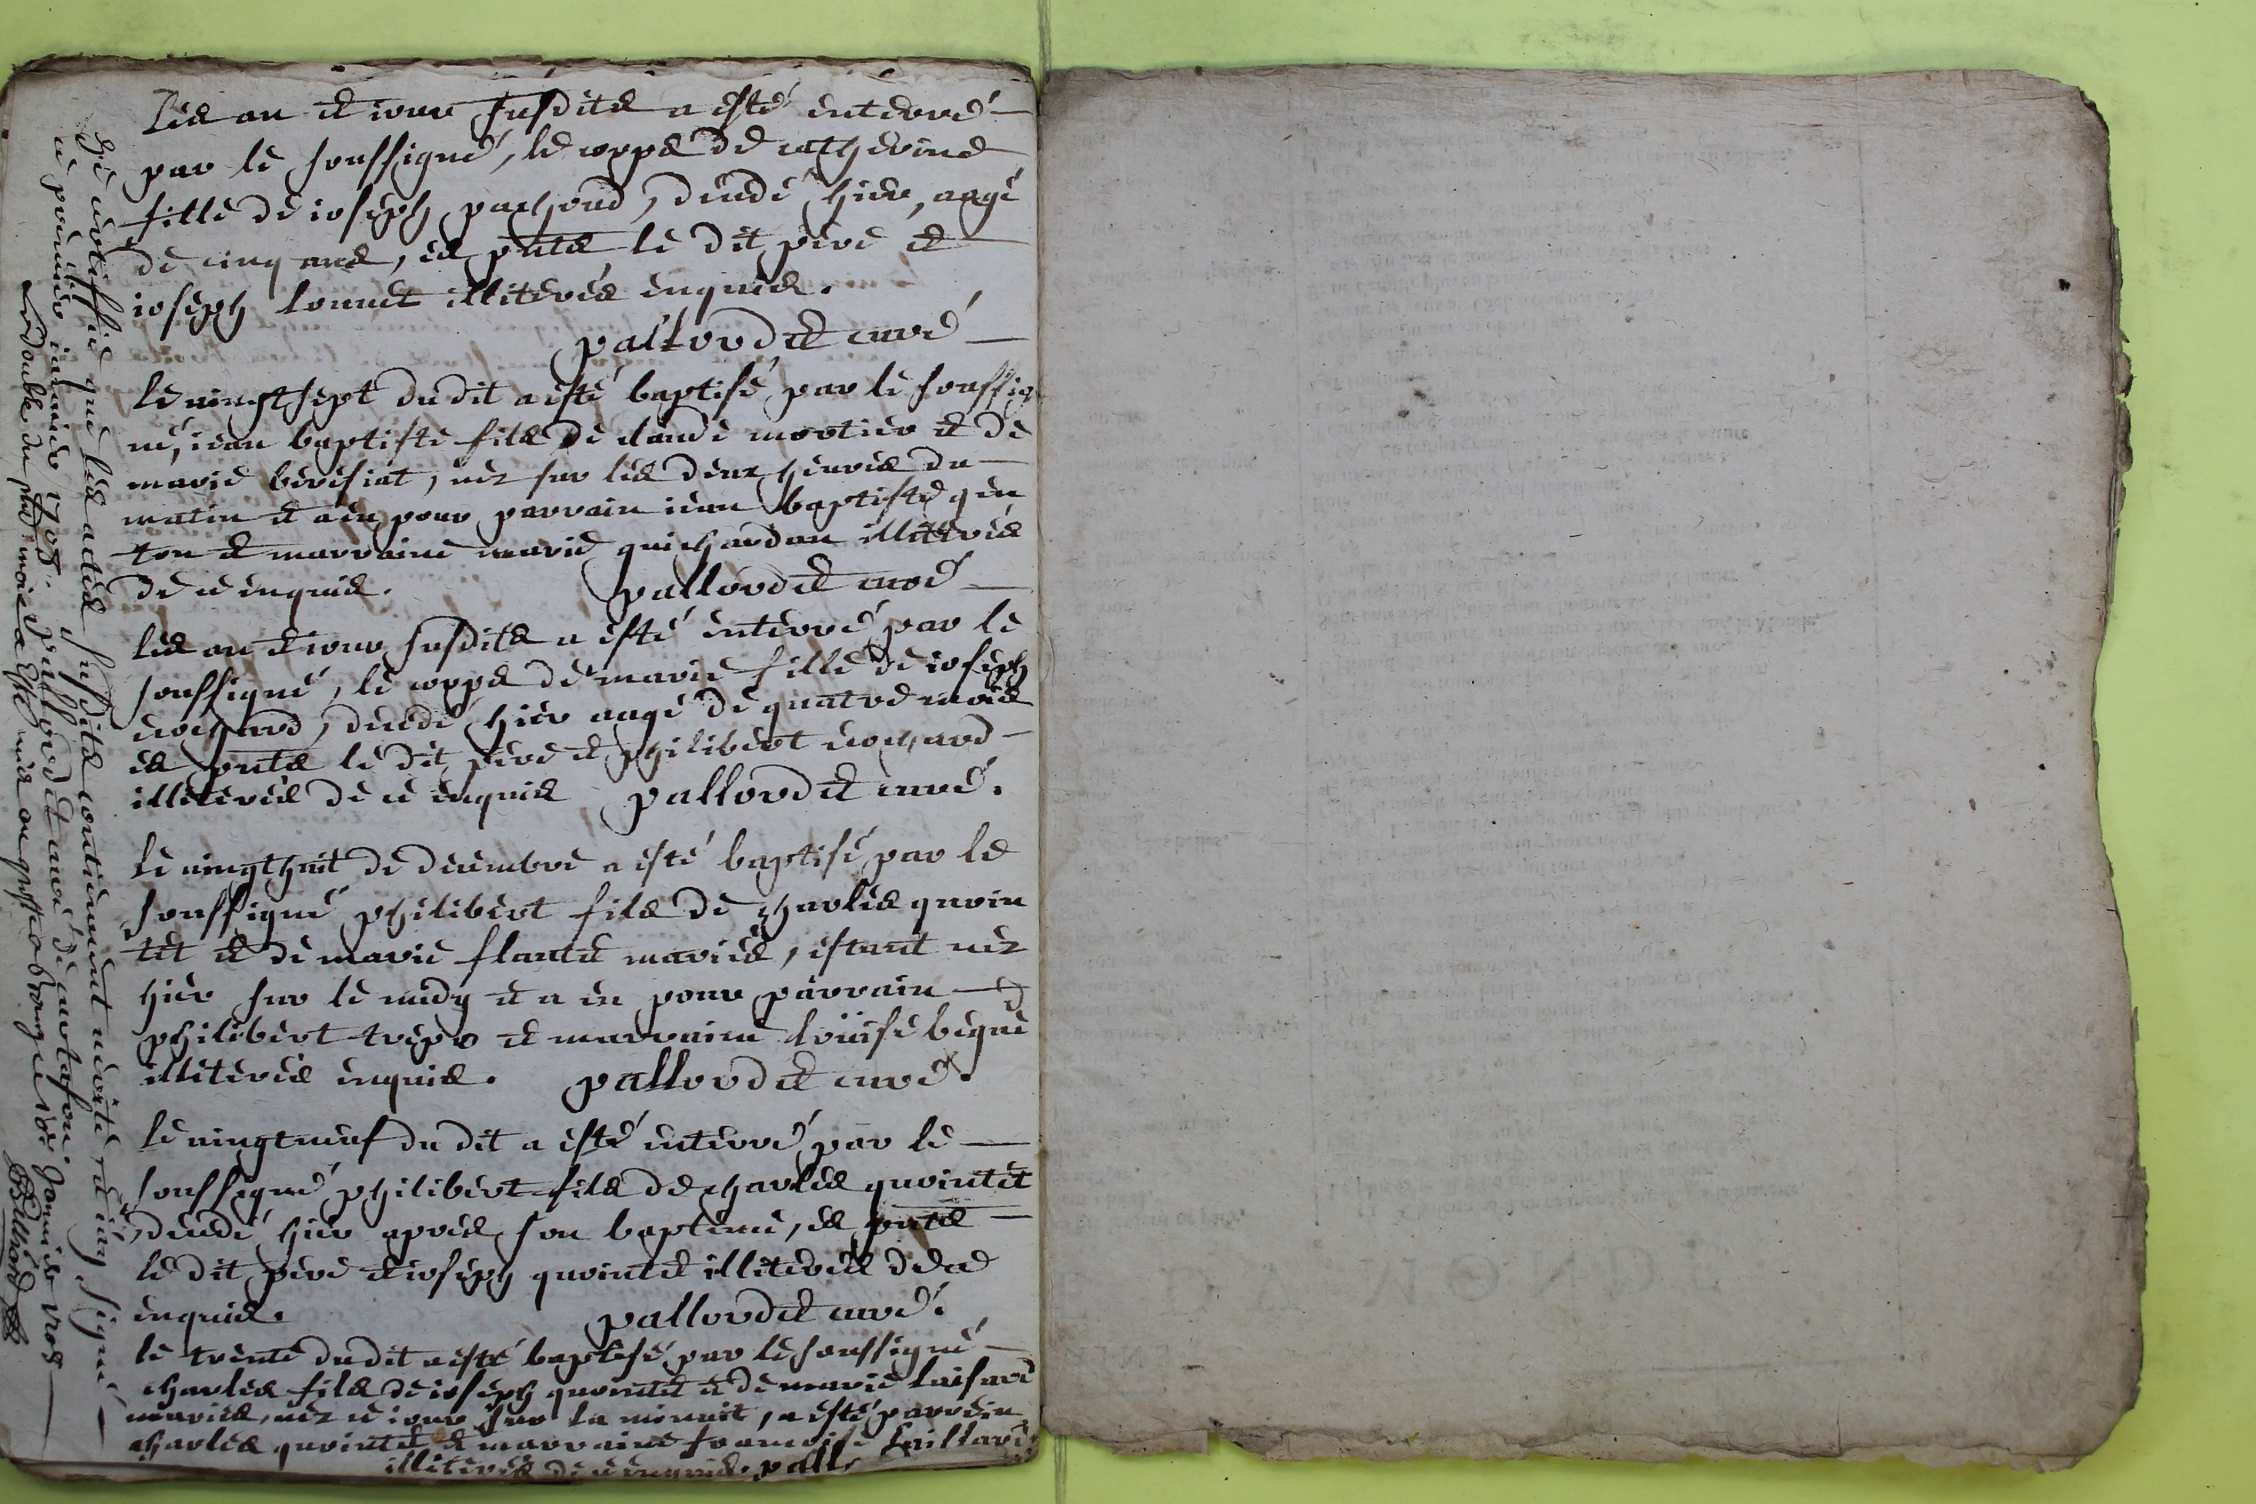 Les an et iour susdits a esté enterré
par le soussigné, le corps de catherine
fille de ioseph pachoud, decedé hier, aagé
de cinq ans, es pnts le dit pere et
ioseph louuet illiterés enquis.
pallordet curé
le vingtsept du dit a esté baptisé par le soussig
né, iean baptiste fils de claude mortier et de
marie beresiat, nez sur les deux heures du
matin et a eu pour parrain iean baptiste gen
ton et marraine marie guichardan illiterés
de ce enquis. pallordet curé
les an et iour susdits a esté enterré par le
soussigné, le corps de marie fille de ioseph
crochard, decedé hier aagé de quatre mois
es pnts le dit pere et philibert crochard
illiterés de ce enquis pallordet curé.
le vingthuit de decembre a esté baptisé par le
soussigné philibert fils de charles quoin
tet et de marie flantet mariés, estant nez
hier sur le midy et a eu pour parrain
philibert trepo et marraine loüise beque
illiterés enquis. pallordet curé.
le vingtneuf du dit a esté enterré par le
soussigné philibert fils de charles quointet
decedé hier apres son bapteme, es pnts
le dit pere et ioseph quointet illiterés de ce
enquis. pallordet curé.
le trente du dit a esté baptisé par le soussigné
charles fils de ioseph quointet et de marie
mariés, nez ce iour sur la minuit, a esté parrein
charles quointet et marraine francoise
illiterés de ce enquis. pall
Je certiffie que les actes susdits contiennent verité en foy signé
ce premier ianuier 1708. pallordet curé de curtafon.
double du pnt mois a esté mis au greffe a bourg ce Ianuier 1708
Billiard